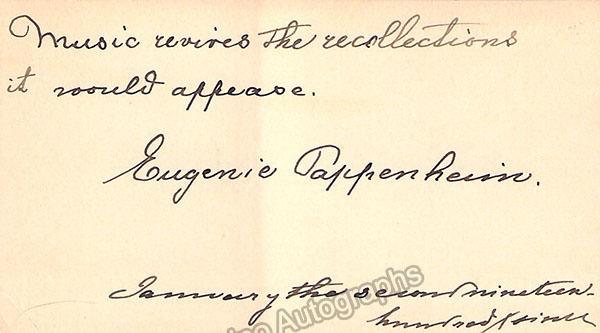 Music revives the recollections
it would appease.
Eugenie Pappenheim.
January the second nineteen-
hundred
Autographs